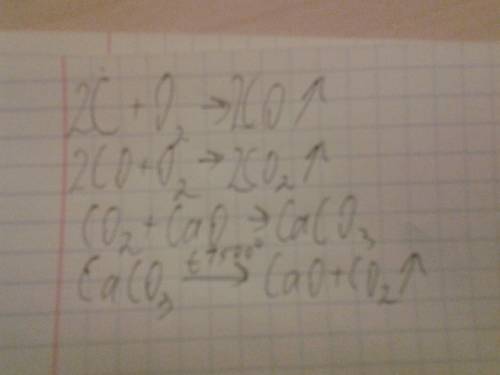 2C + O₂ → 2CO ↑
2CO + O₂ → 2CO₂ ↑
CO₂ + CaO → CaCO₃
CaCO₃ → CaO + CO₂ ↑